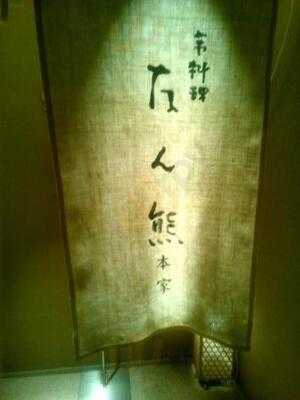 京料理
たん熊
本家